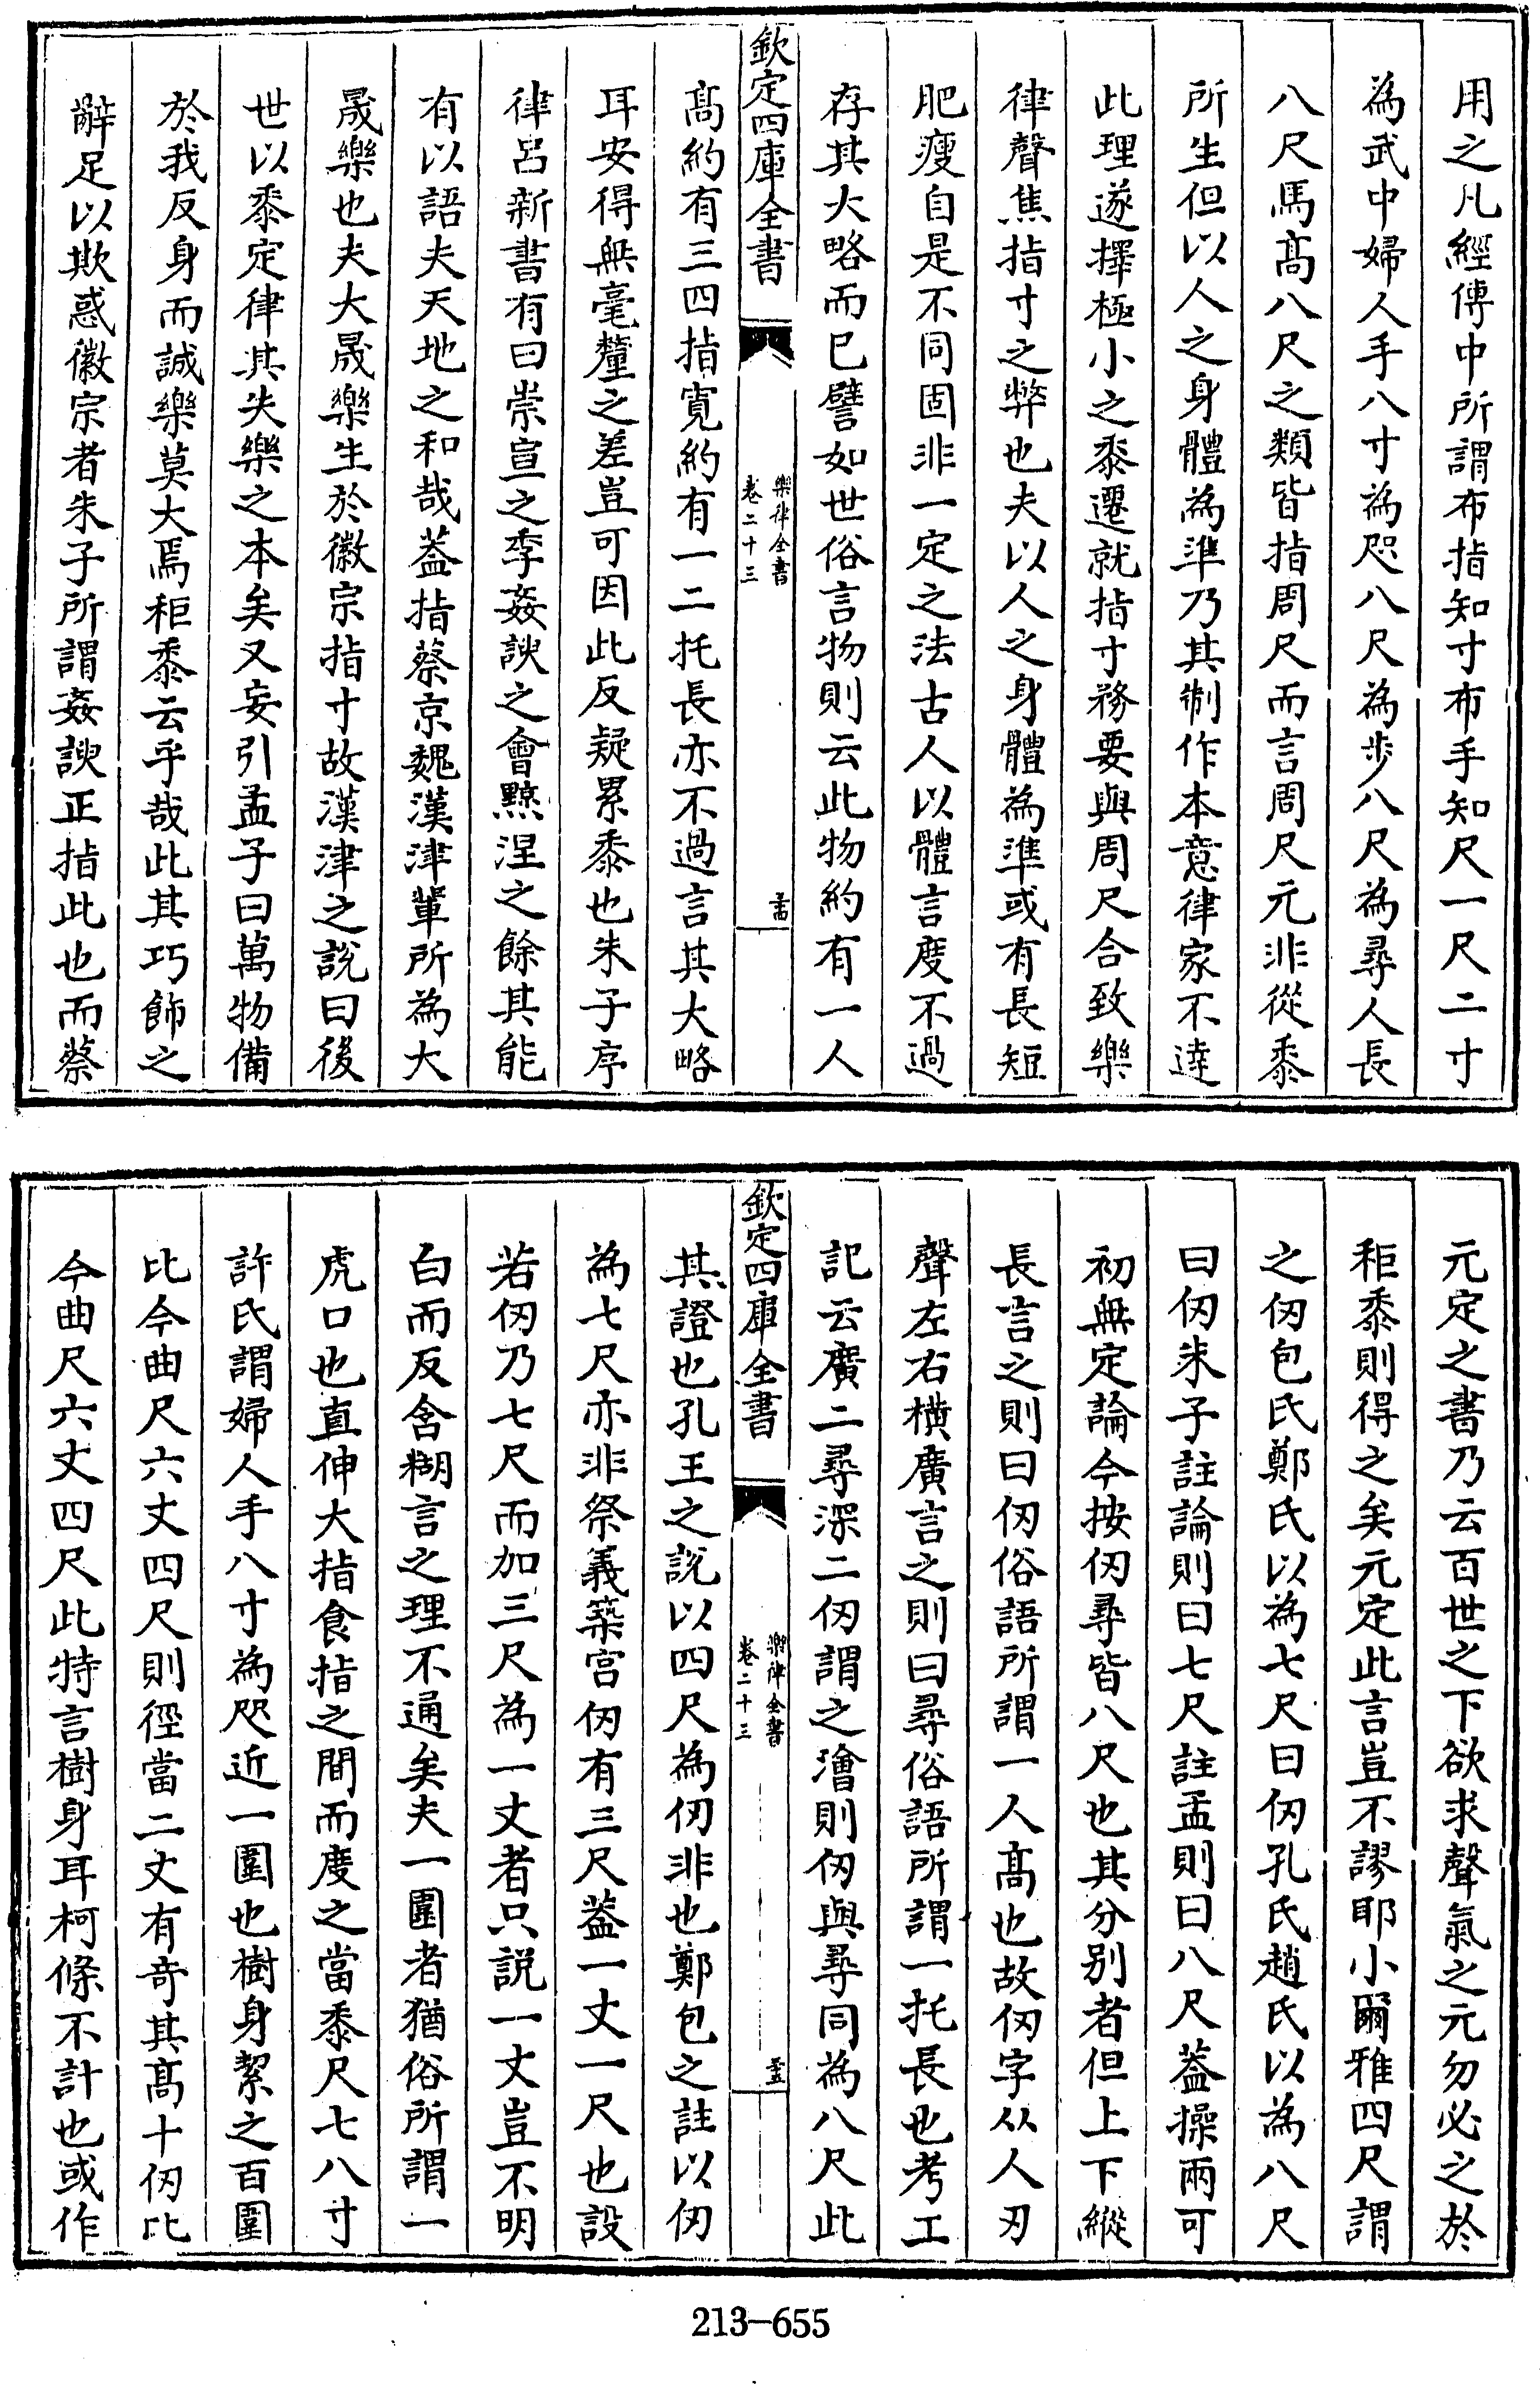 用之凡經傳中所謂布指知寸布手知尺一尺二寸
為武中婦人手八寸為咫八尺為步八尺為尋人長
八尺馬髙八尺之類皆指周尺而言周尺元非從黍
所生但以人之身體為準乃其制作本意律家不逹
此理遂擇極小之黍遷就指寸務要與周尺合致樂
律聲焦指寸之弊也夫以人之身體為準或有長短
肥瘦自是不同固非一定之法古人以體言度不過
存其大略而已譬如世俗言物則云此物約有一人
欽定四庫全書
樂律全書
卷二十三
髙約有三四指寛約有一二托長亦不過言其大略
耳安得無毫釐之差豈可因此反疑累黍也朱子序
律呂新書有曰崇宣之季姦諛之會黥涅之餘其能
有以語夫天地之和哉葢指蔡京魏漢津輩所為大
晟樂也夫大晟樂生於徽宗指寸故漢津之說曰後
世以黍定律其失樂之本矣又妄引孟子曰萬物備
於我反身而誠樂莫大焉秬黍云乎哉此其巧飾之
辭足以欺惑徽宗者朱子所謂姦諛正指此也而蔡
元定之書乃云百世之下欲求聲氣之元勿必之於
秬黍則得之矣元定此言豈不謬耶小爾雅四尺謂
之仞包氏鄭氏以為七尺曰仞孔氏趙氏以為八尺
曰仞朱子註論則曰七尺註孟則曰八尺葢操兩可
初無定論今按仞尋皆八尺也其分别者但上下縱
長言之則曰仞俗語所謂一人髙也故仞字从人刃
聲左右橫廣言之則曰尋俗語所謂一托長也考工
記云廣二尋深二仞謂之澮則仞與尋同為八尺此
欽定四庫全書
樂律全書
卷二十三
其證也孔王之說以四尺為仞非也鄭包之註以仞
為七尺亦非祭義築宫仞有三尺葢一丈一尺也設
若仞乃七尺而加三尺為一丈者只説一丈豈不明
白而反含糊言之理不通矣夫一圍者猶俗所謂一
虎口也直伸大指食指之間而度之當黍尺七八寸
許氏謂婦人手八寸為咫近一圍也樹身絜之百圍
比今曲尺六丈四尺則徑當二丈有奇其髙十仞比
今曲尺六丈四尺此特言樹身耳柯條不計也或作
213-655